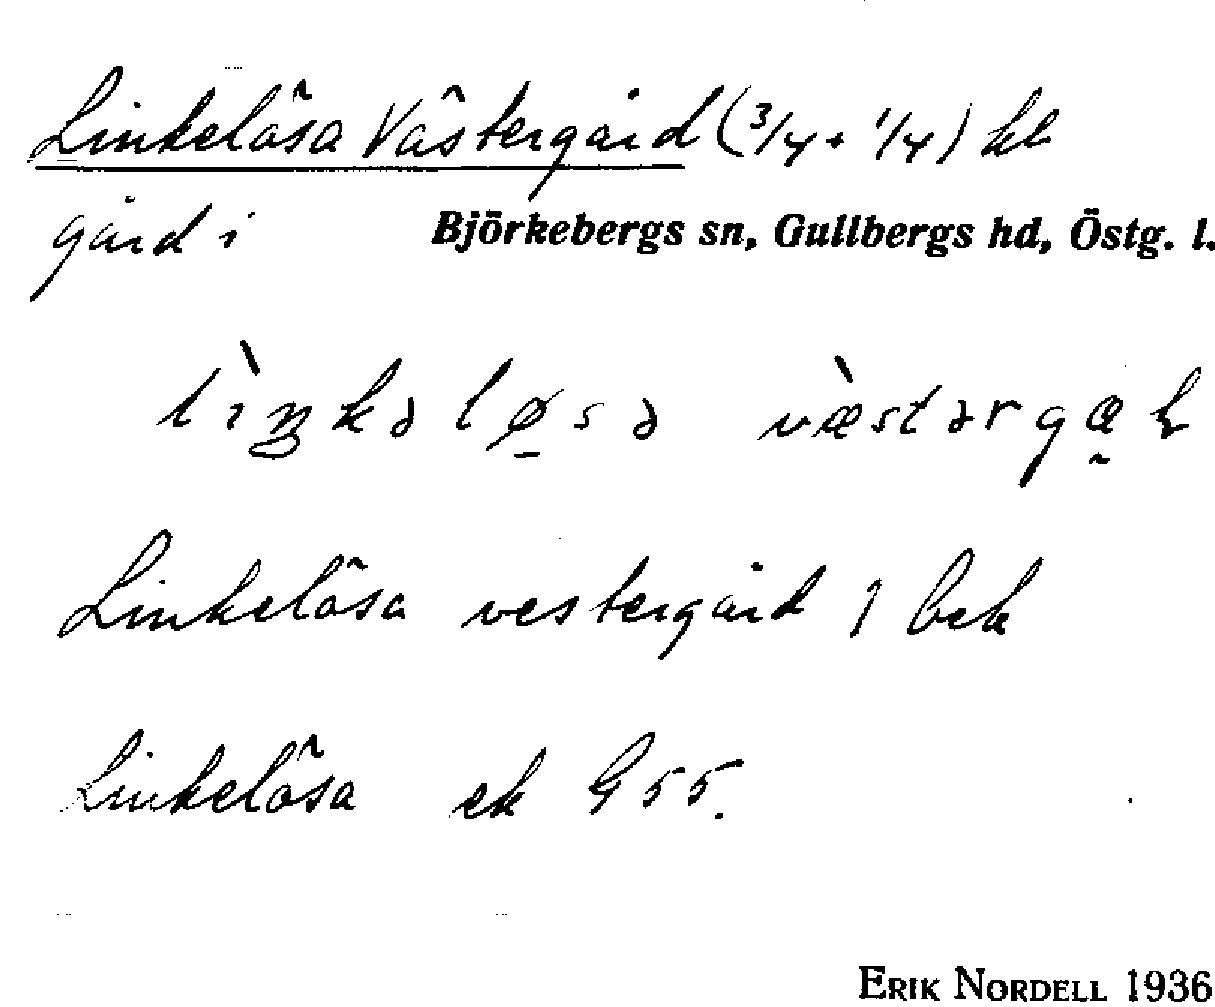 Linkelösa Västergård (3/4 + 1/4) hb
gård i Björkebergs sn, Gullbergs hd, Östg. l.
lìŋkəløsə væ̀stərgɑ
Linkelösa vestergård J bek
Linkelösa ek G 55.
ERIK NORDELL 1936